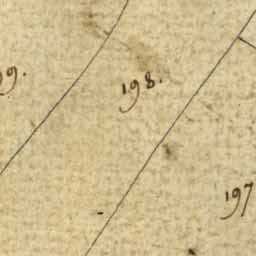 99.
198.
197